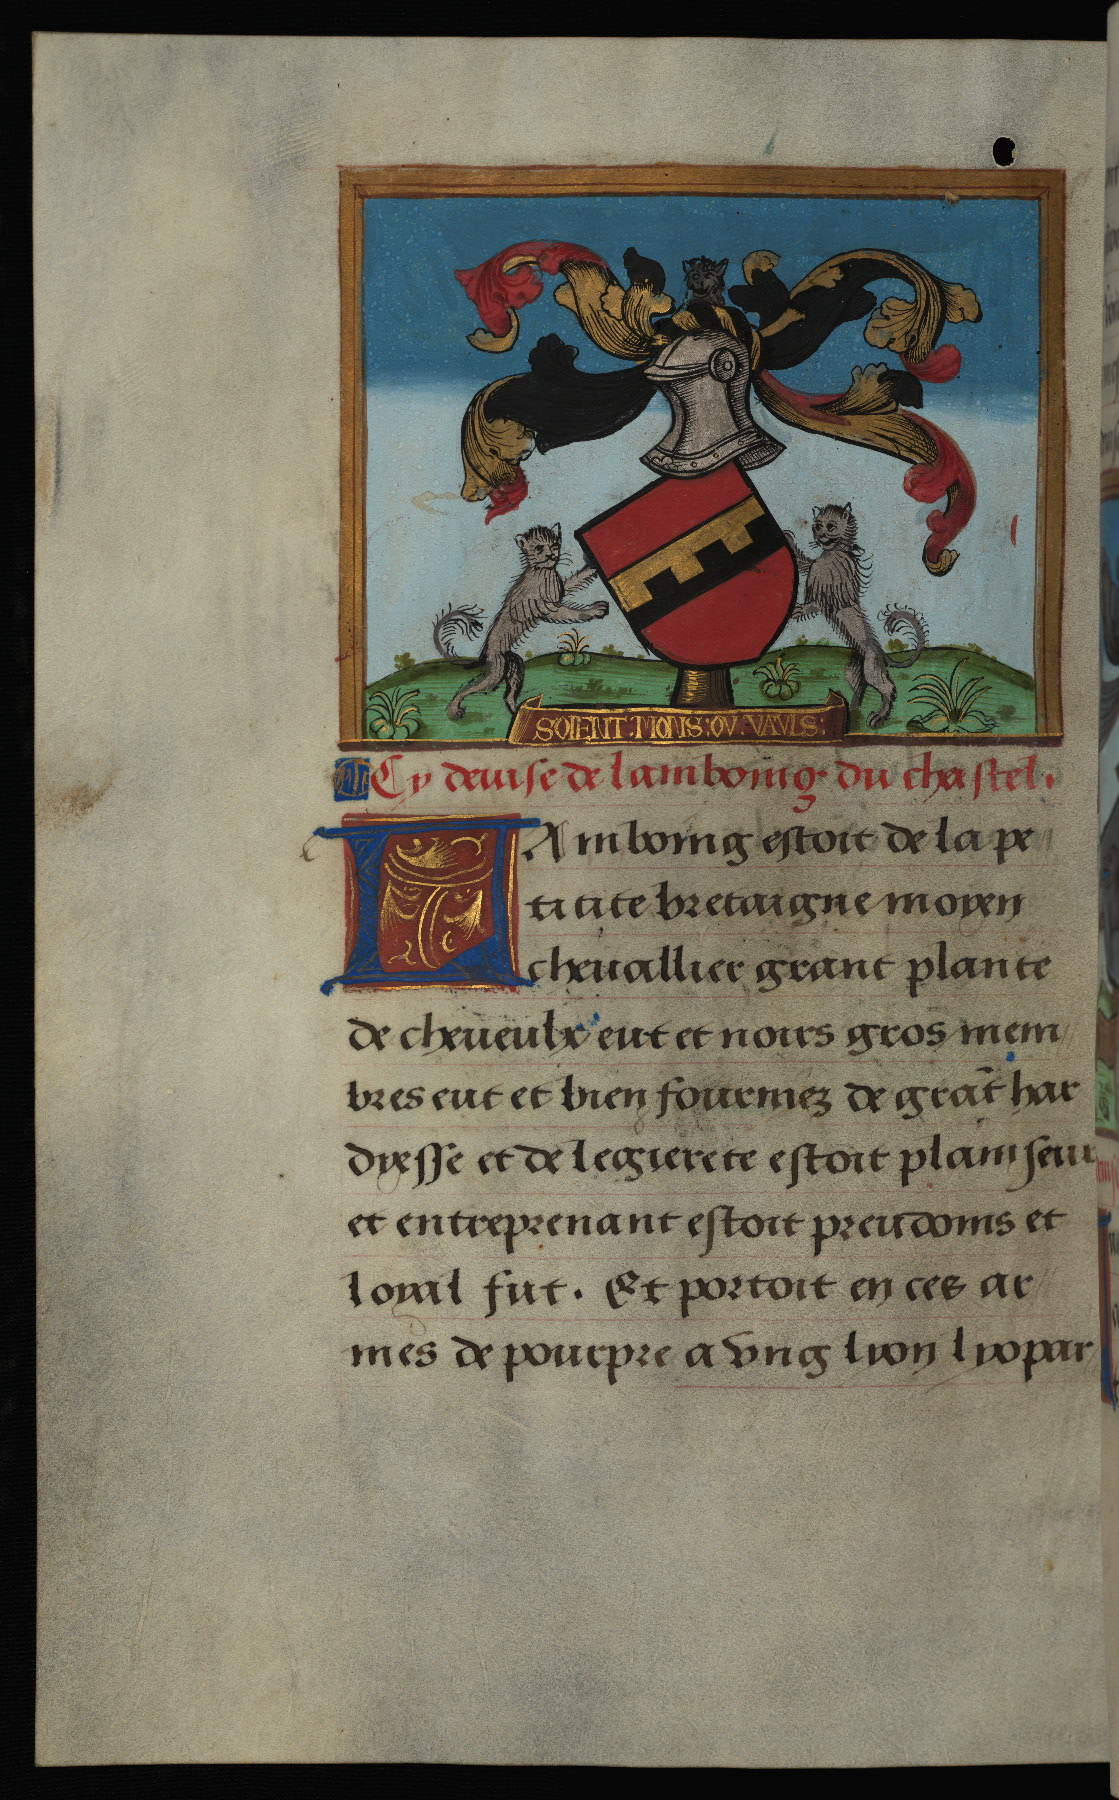 SOIENT : MONS : OV : VAVLS :
Cy deuise de lamboing du chastel.
LAmboing estoit de la pe
ti tite bretaigne moyen
cheuallier grant plante
de cheueulx eut et noirs gros mem
bres eut et bien fourmez de grāt har
dyesse et de legierete estoit plaisseur
et entreprenant estoit preudoms et
loyal fut. Et portoit en ces ar
mes de pourpre a vng lyon lyopar